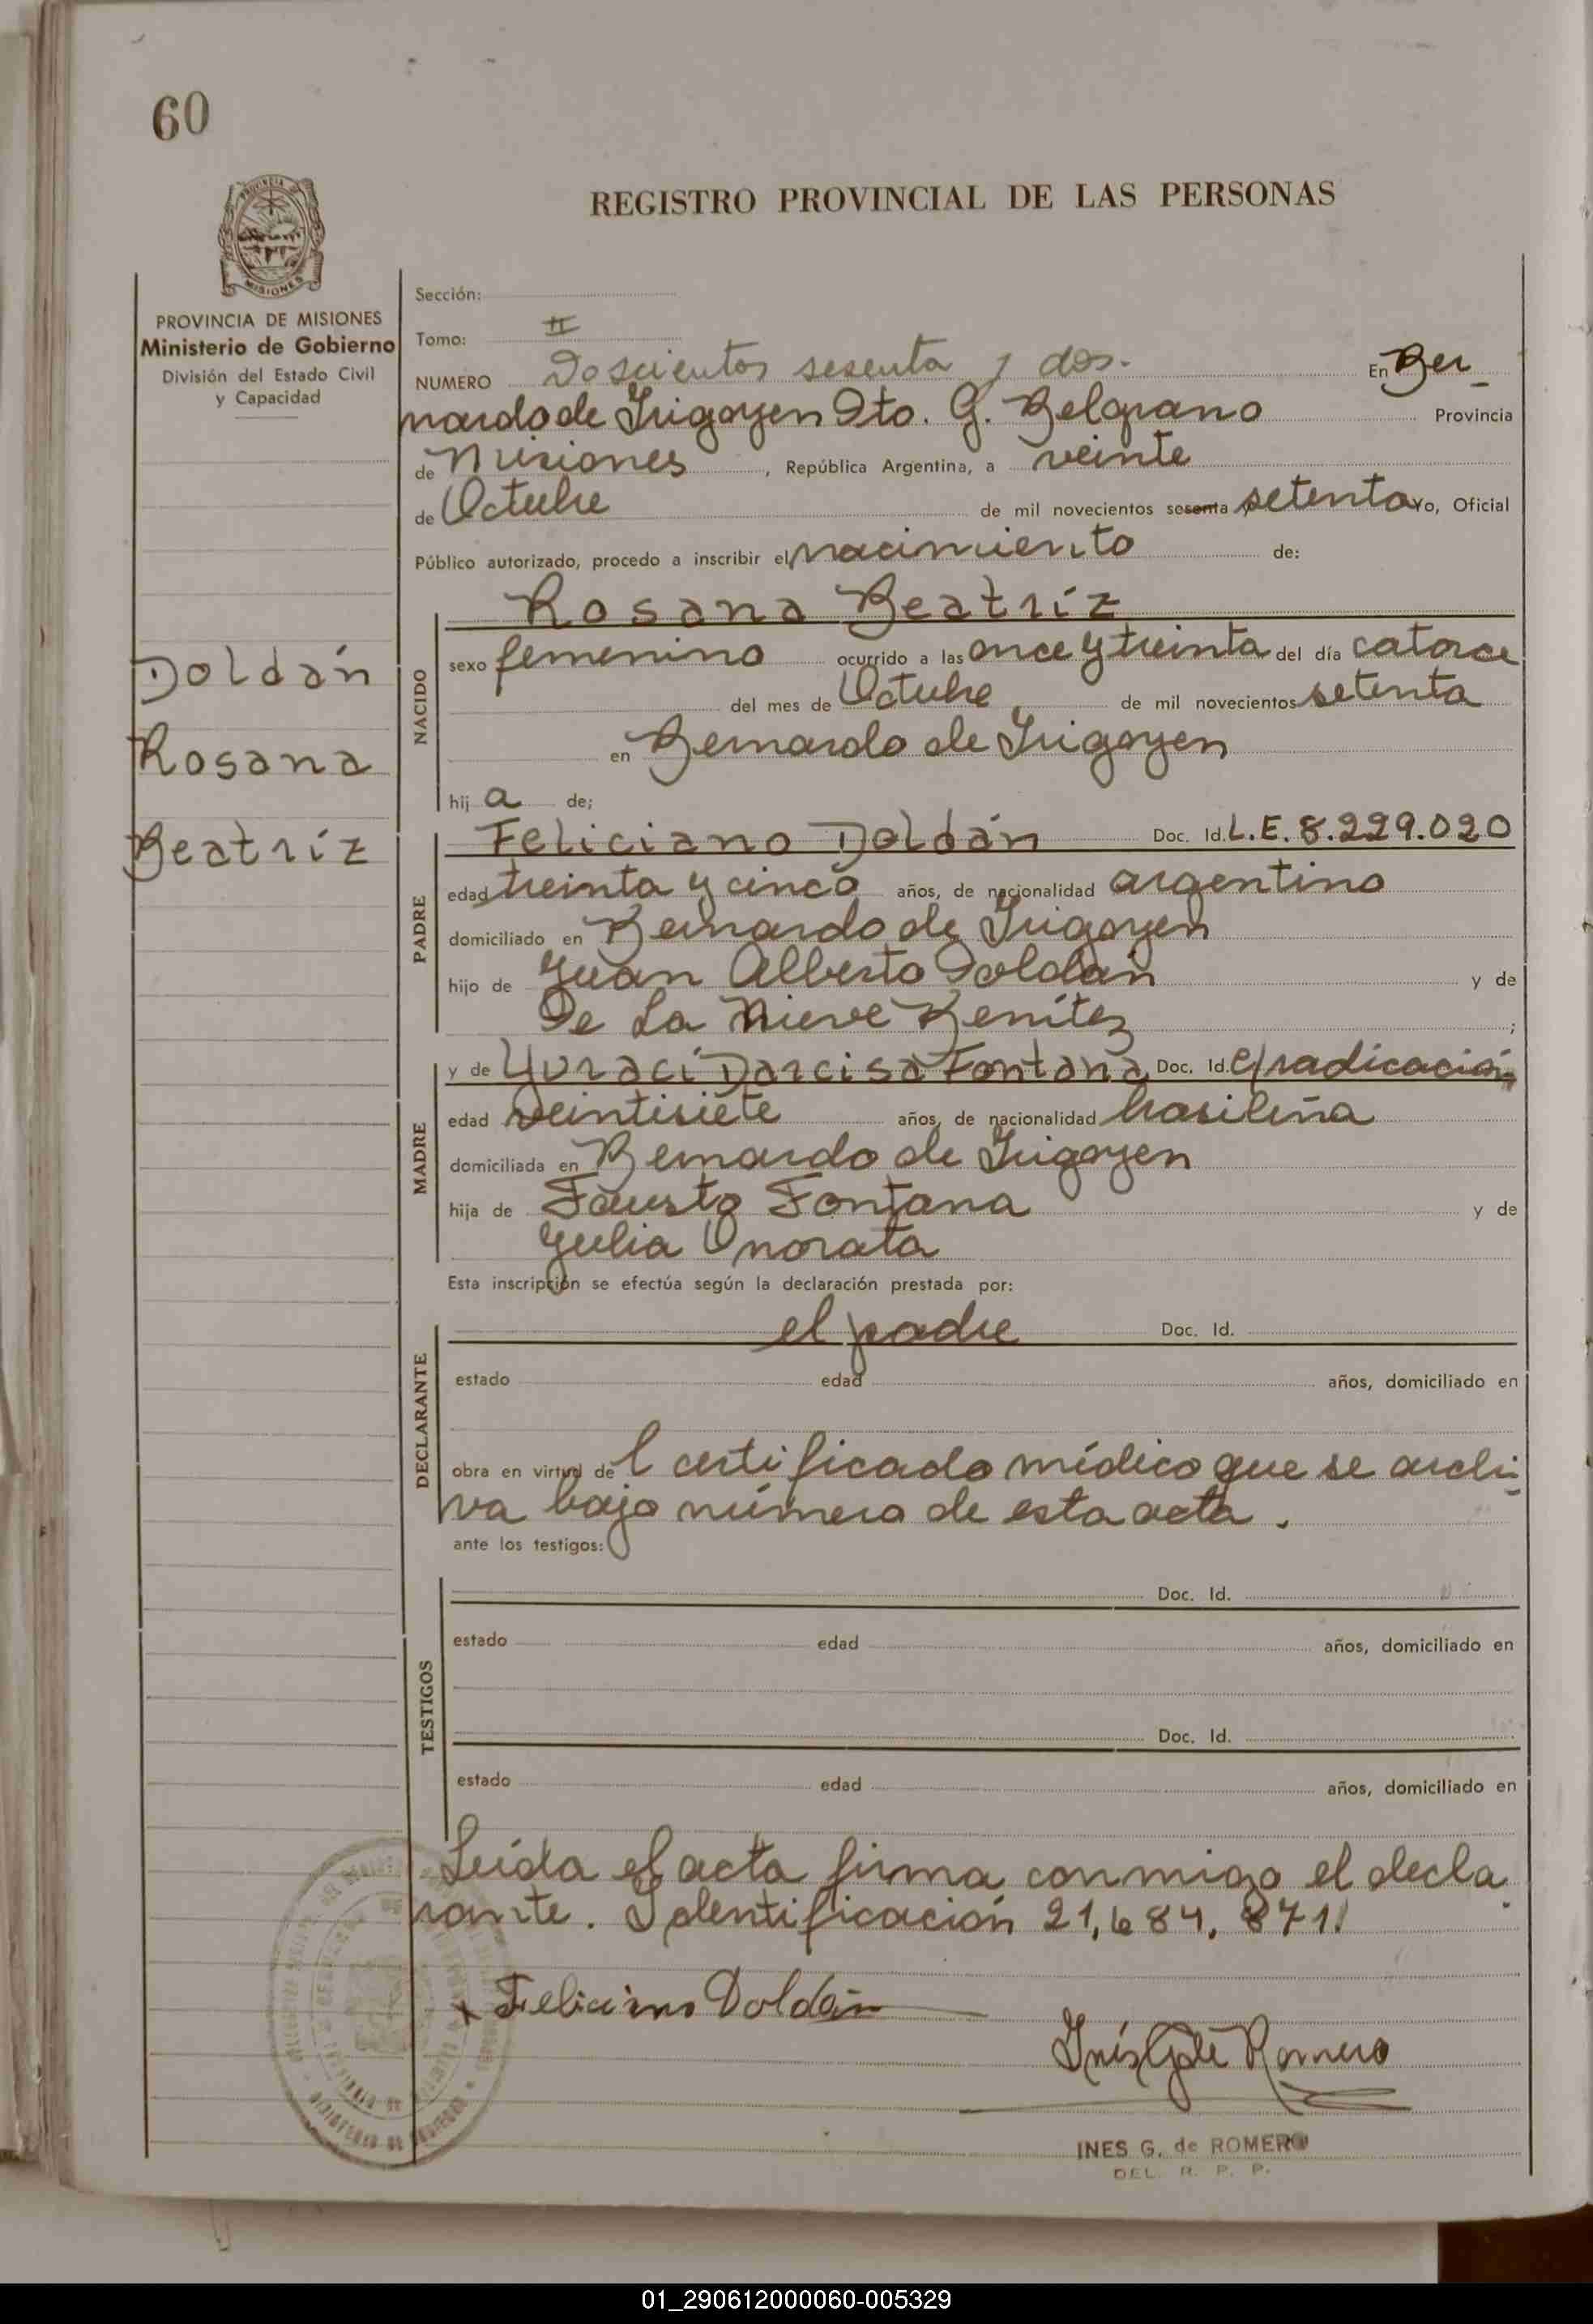 60
MISIONES
REGISTRO PROVINCIAL DE LAS PERSONAS
PROVINCIA DE MISIONES
Ministerio de Gobierno
División del Estado Civil
y Capacidad
Doldán
Rosana
Beatríz
Sección:
Tomo: II
NUMERO Doscientos sesenta y dos. En Ber_
nardo de Irigoyen Dto. G. Belgrano Provincia
de Misiones, República Argentina, a veinte
de Octubre de mil novecientos sesenta setenta Yo, Oficial
Público autorizado, procedo a inscribir el nacimiento de:
NACIDO
Rosana Beatríz
sexo femenino ocurrido a las once y treinta del día catorce
del mes de Octubre, de mil novecientos setenta
en Bernardo de Irigoyen
hij a de;
PADRE
Feliciano Doldán Doc. Id. L.E. 8.229.020
edad treinta y cinco años, de nacionalidad argentino
domiciliado en Bernardo de Irigoyen
hijo de Juan Alberto Doldán y de
De La Nieve Benítez ;
MADRE
y de Yuraci Darcisa Fontana Doc. Id. C/radicación
edad veintisiete años, de nacionalidad brasileña
domiciliada en Bernardo de Irigoyen
hija de Fausto Fontana y de
Julia Onorata
Esta inscripción se efectúa según la declaración prestada por:
DECLARANTE
el padre Doc. Id.
estado edad años, domiciliado en
obra en virtud de l certificado médico que se archi_
va bajo número de esta acta.
ante los testigos:
TESTIGOS
Doc. Id.
estado edad años, domiciliado en
Doc. Id.
estado edad años, domiciliado en
Leída el acta firma conmigo el decla
rante. Identificación 21,684,871.
x Feliciano Doldán
Inés G de Romero
INES G. de ROMERO
DEL. R. P. P.
01_290612000060-005329